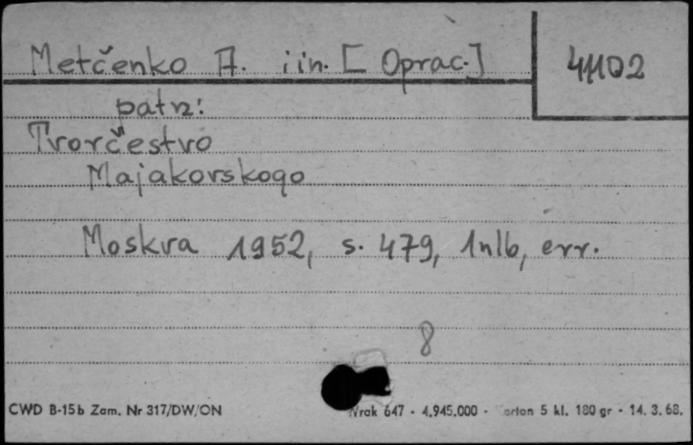 Metčenko A. i in. [Oprac.]
41102
patrz:
Tvorčestvo
Majakovskogo
Moskva 1952, s. 479, 1nlb, err.
8
CWD B-15b Zam. Nr 317/DW/ON
647 - 4.945.000 - 5 kl. 180 gr - 14. 3. 68.